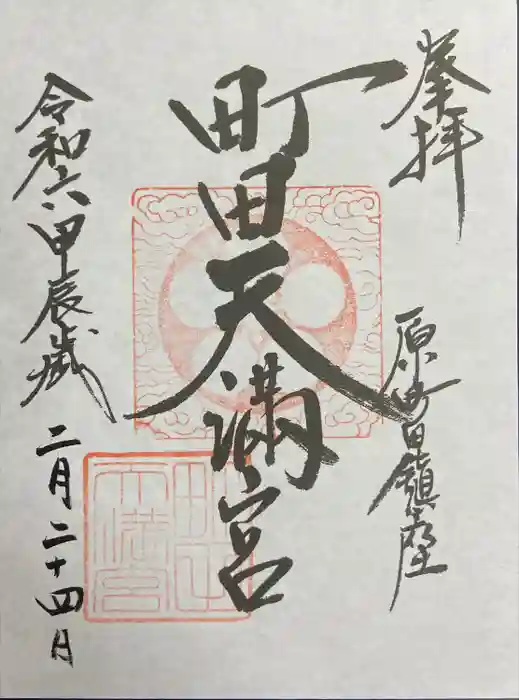 奉拝
原町田鎮座
町田天満宮
令和六甲辰歳
二月二十四日
町田
天満宮